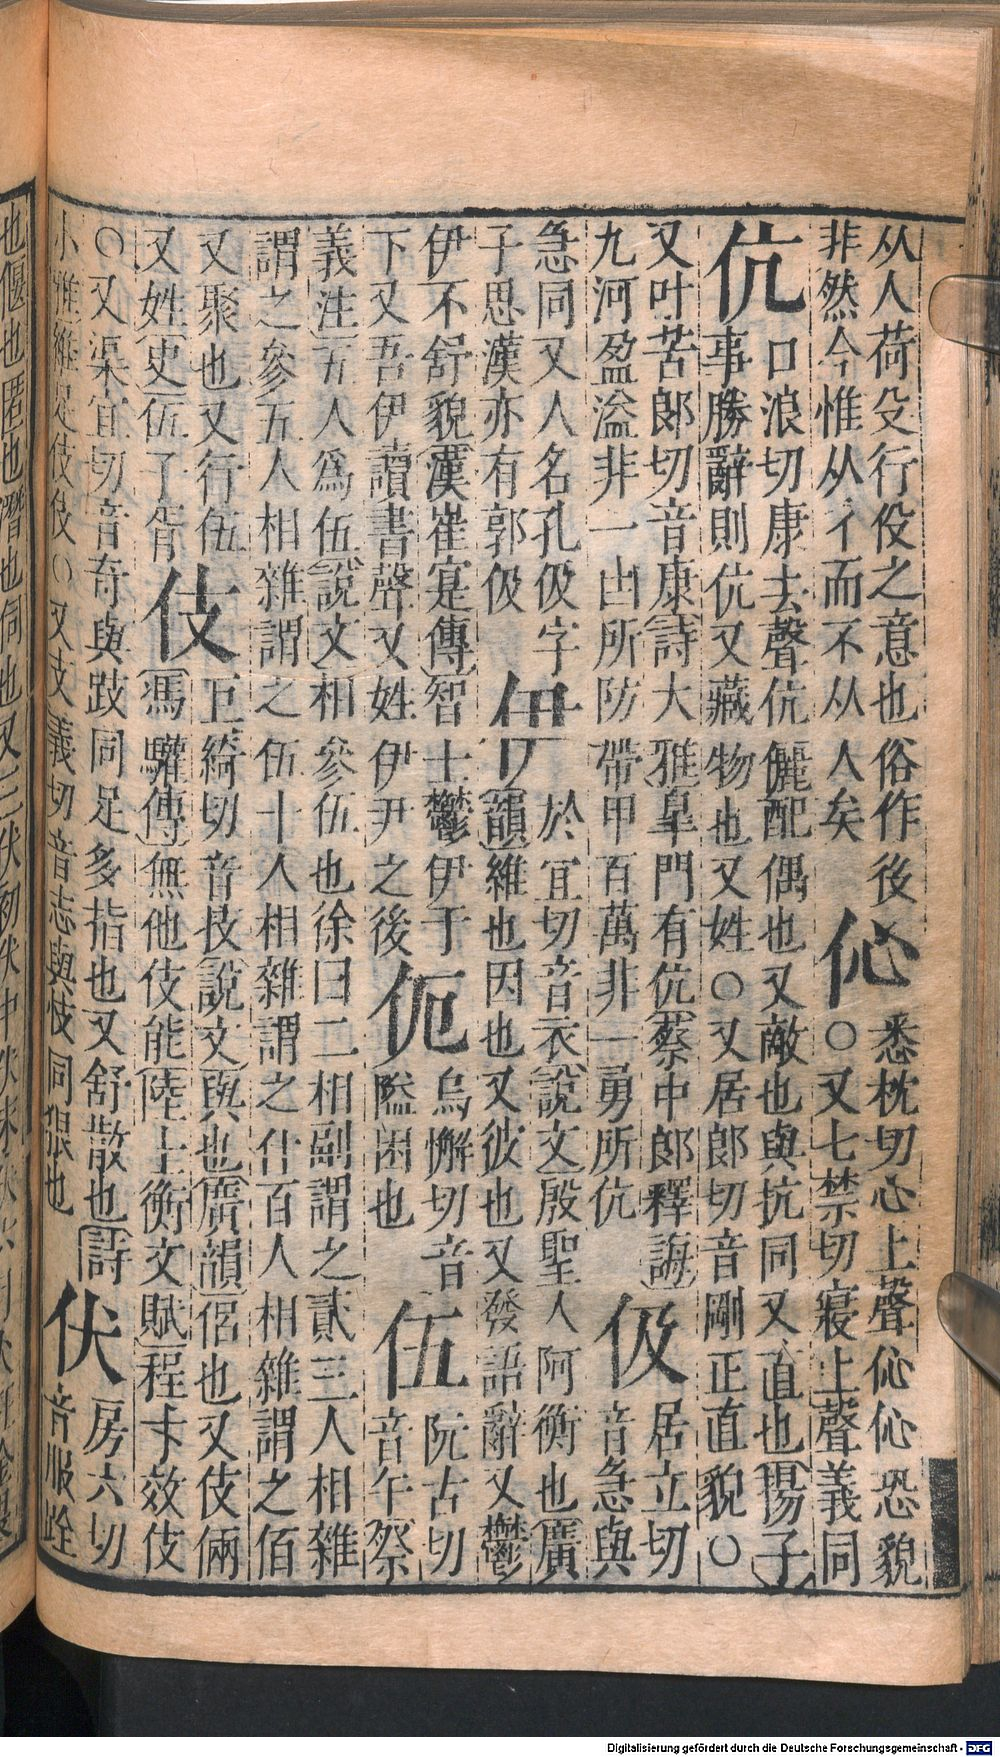 从人荷殳行役之意也俗作後
非然今惟从彳而不从人矣
伈
悉枕切心上聲伈伈恐貌
○又七禁切寢上聲義同
伉
口浪切康去聲伉儷配偶也又敵也與抗同又直也揚子
事勝辭則伉又藏物也又姓○又居郎切音剛正直貌○
又叶苦郎切音康詩大雅皐門有伉蔡中郎釋誨
九河盈溢非一凷所防帶甲百萬非一勇所伉
伋
居立切
音急與
急同又人名孔伋字
子思漢亦有郭伋
伊
於宜切音衣說文殷聖人阿衡也廣
韻維也因也又彼也又發語辭又鬱
伊不舒貌漢崔寔傳智士鬱伊于
下又吾伊讀書聲又姓伊尹之後
伌
烏懈切音
隘困也
伍
阮古切
音午祭
義注五人爲伍說文相參伍也徐曰二相副謂之貳三人相雜
謂之參五人相雜謂之伍十人相雜謂之什百人相雜謂之佰
又聚也又行伍
又姓史伍子胥
伎
巨綺切音技說文與也廣韻侶也又伎倆
馮驩傳無他伎能陸士衡文賦程才效伎
○又渠宜切音奇與跂同足多指也又舒散也詩
小雅維足伎伎○又支義切音志與忮同狠也
伏
房六切
音服跧
也偃也匿也潛也伺也又三伏初伏中伏末伏
Digitalisierung gefördert durch die Deutsche Forschungsgemeinschaft - DFG